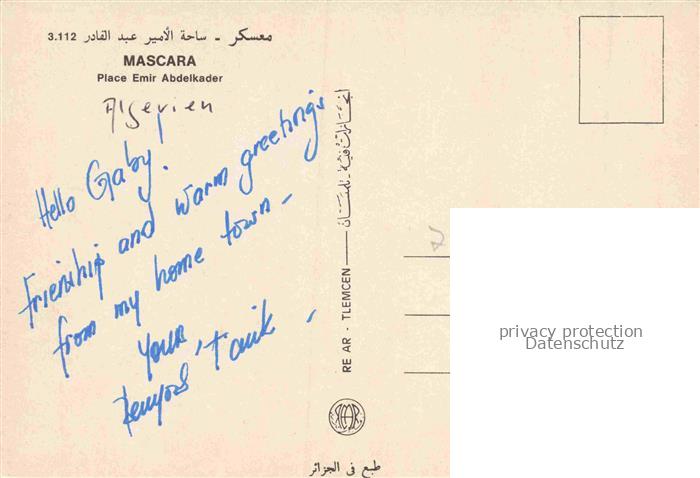 3.112 معسكر - ساحة الأمير عبد القادر
MASCARA
Place Emir Abdelkader
Algerien
Hello Gaby!
Frienship and warm greetings
from my home town -
Your
Tarik -
RE AR - TLEMCEN — انجازات فنية - تلمسان
طبع في الجزائر
privacy protection
Datenschutz